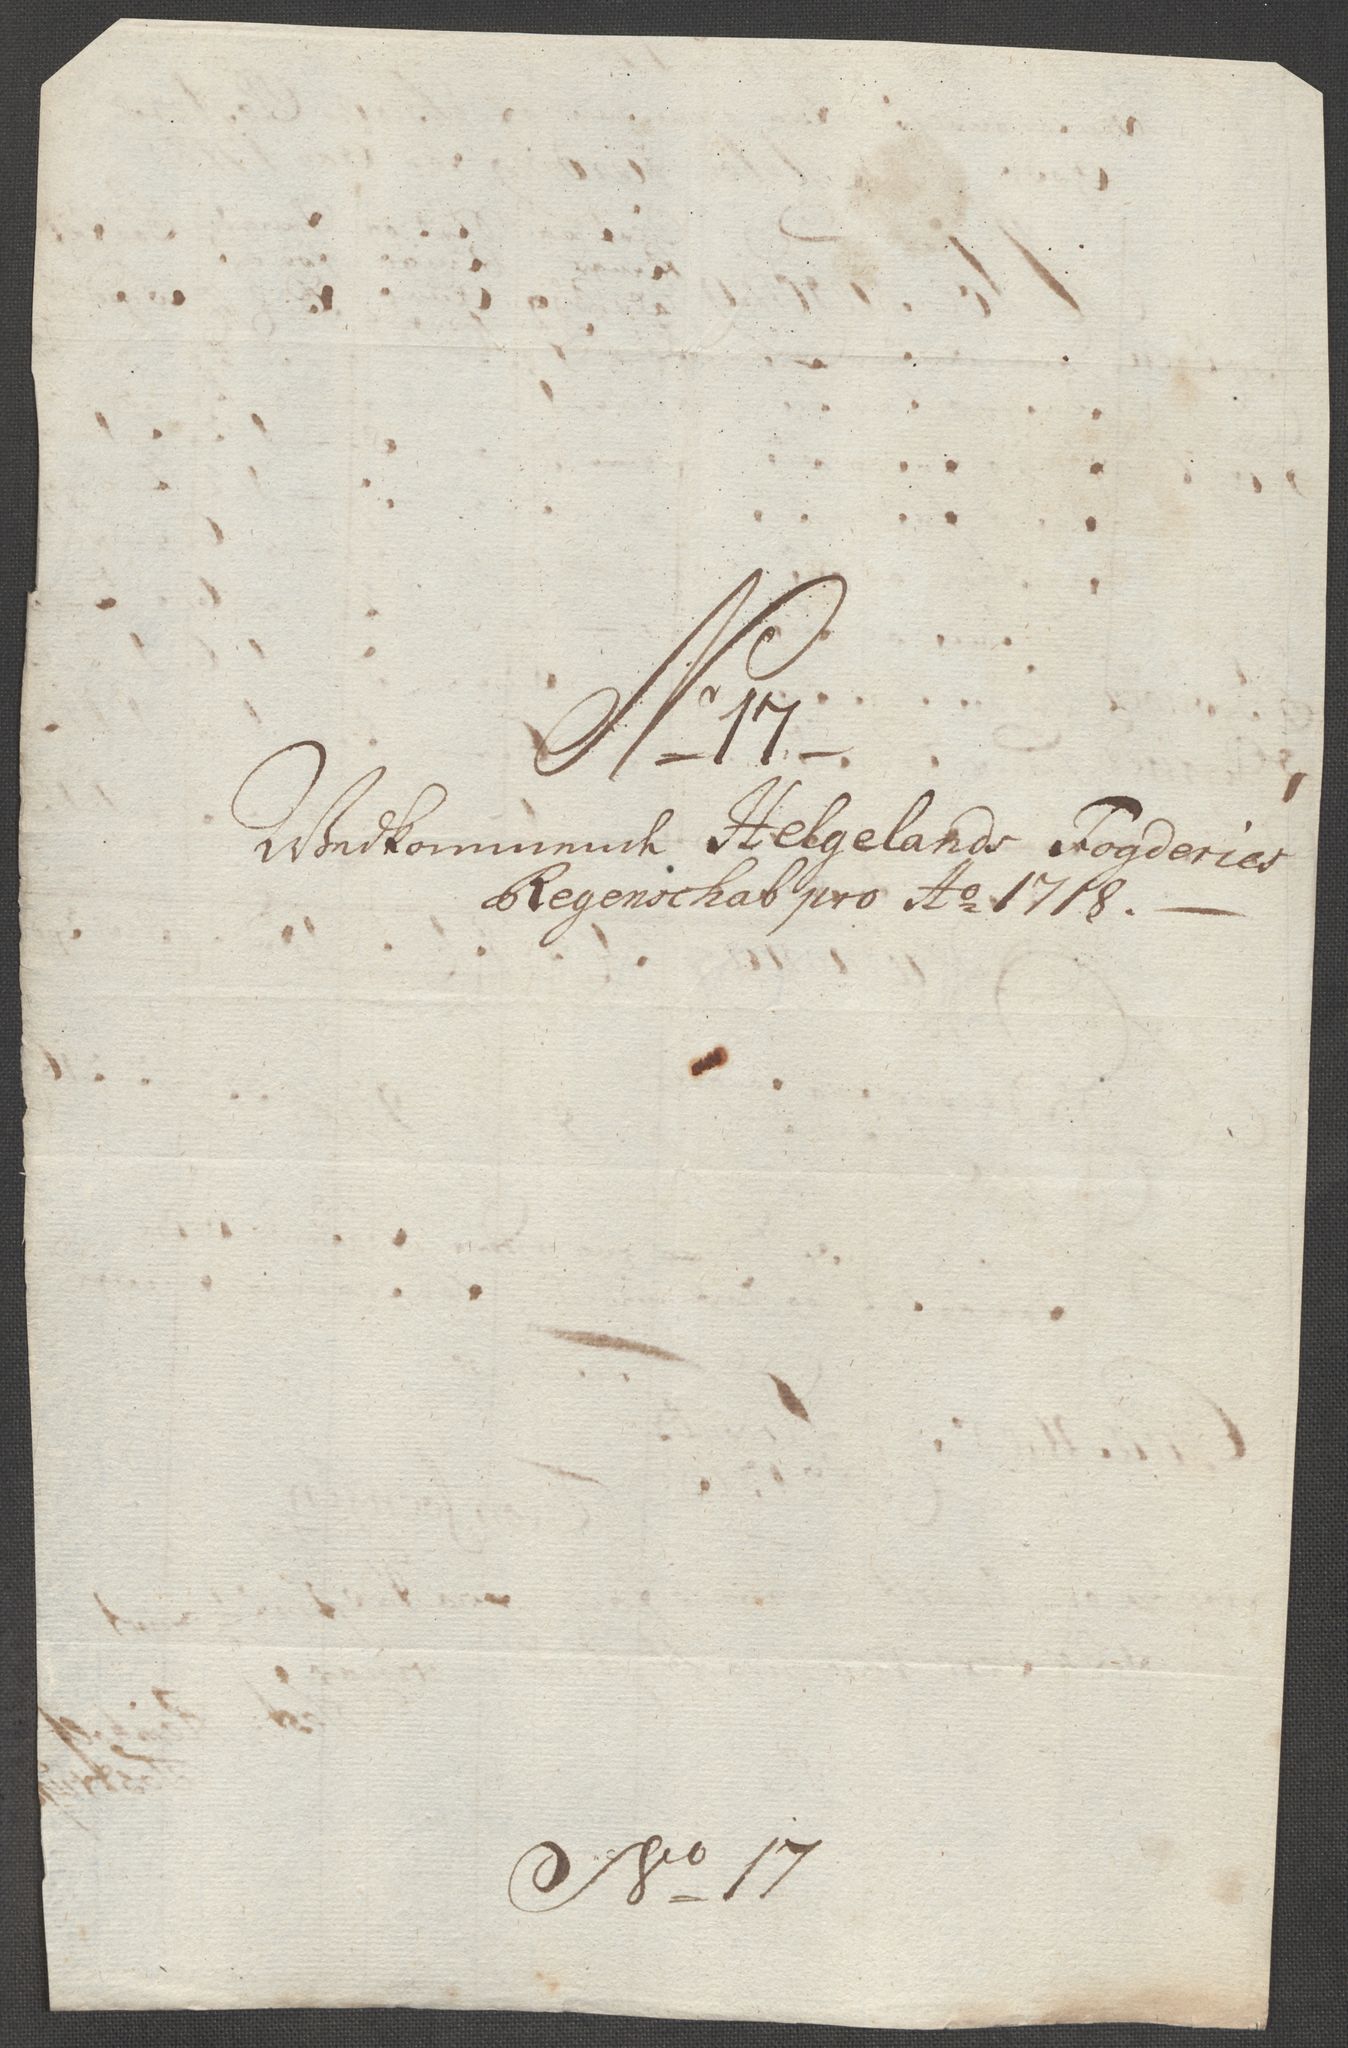 No 17
Vedkommende Helgelands Fogderies
Regenschab pro Ao 1718.
No 17